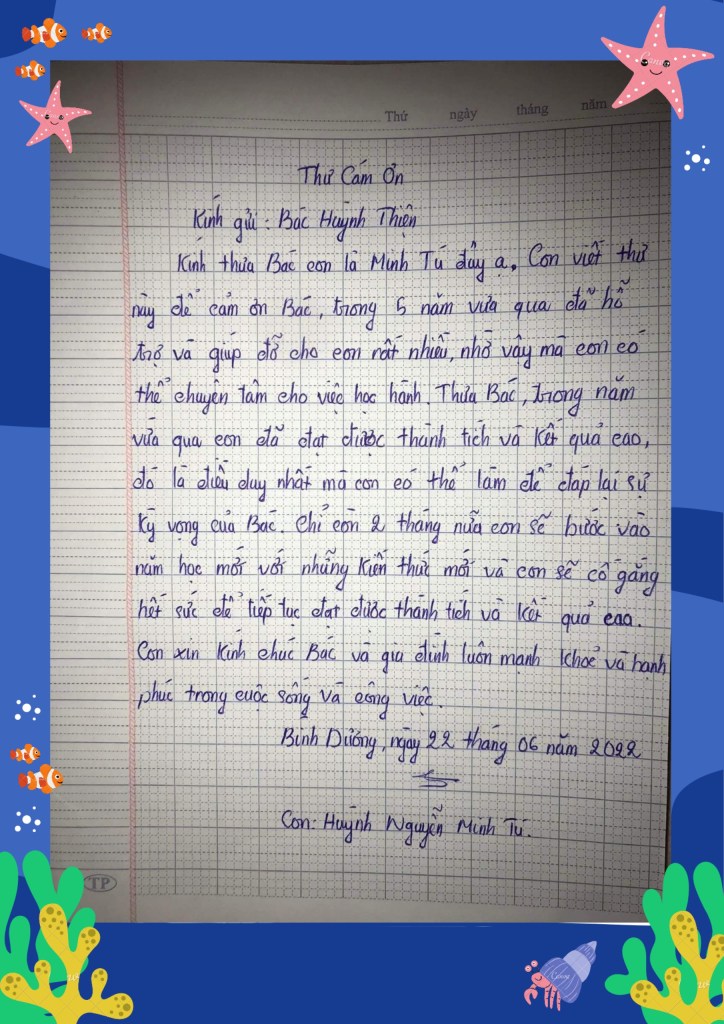 Thứ ngày tháng năm
Thư Cám Ơn
Kính gửi : Bác Huỳnh Thiện
Kính thưa Bác con là Minh Tú đây ạ. Con viết thư
này để cảm ơn Bác, trong 5 năm vừa qua đã hỗ
trợ và giúp đỡ cho con rất nhiều, nhờ vậy mà con có
thể chuyên tâm cho việc học hành. Thưa Bác, trong năm
vừa qua con đã đạt được thành tích và kết quả cao,
đó là điều duy nhất mà con có thể làm để đáp lại sự
kỳ vọng của Bác. Chỉ còn 2 tháng nữa con sẽ bước vào
năm học mới với những kiến thức mới và con sẽ cố gắng
hết sức để tiếp tục đạt được thành tích và kết quả cao.
Con xin kính chúc Bác và gia đình luôn mạnh khoẻ và hạnh
phúc trong cuộc sống và công việc.
Bình Dương, ngày 22 tháng 06 năm 2022
Con: Huỳnh Nguyễn Minh Tú.
TP